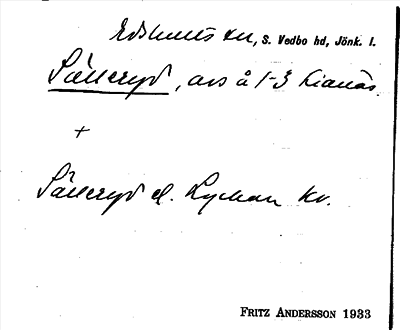 Edshults sn, S. Vedbo hd, Jönk. l.
Sälleryd, avs å 1-3 Kianäs.
+
Sälleryd el. Lyckan kv.
FRITZ ANDERSSON 1933